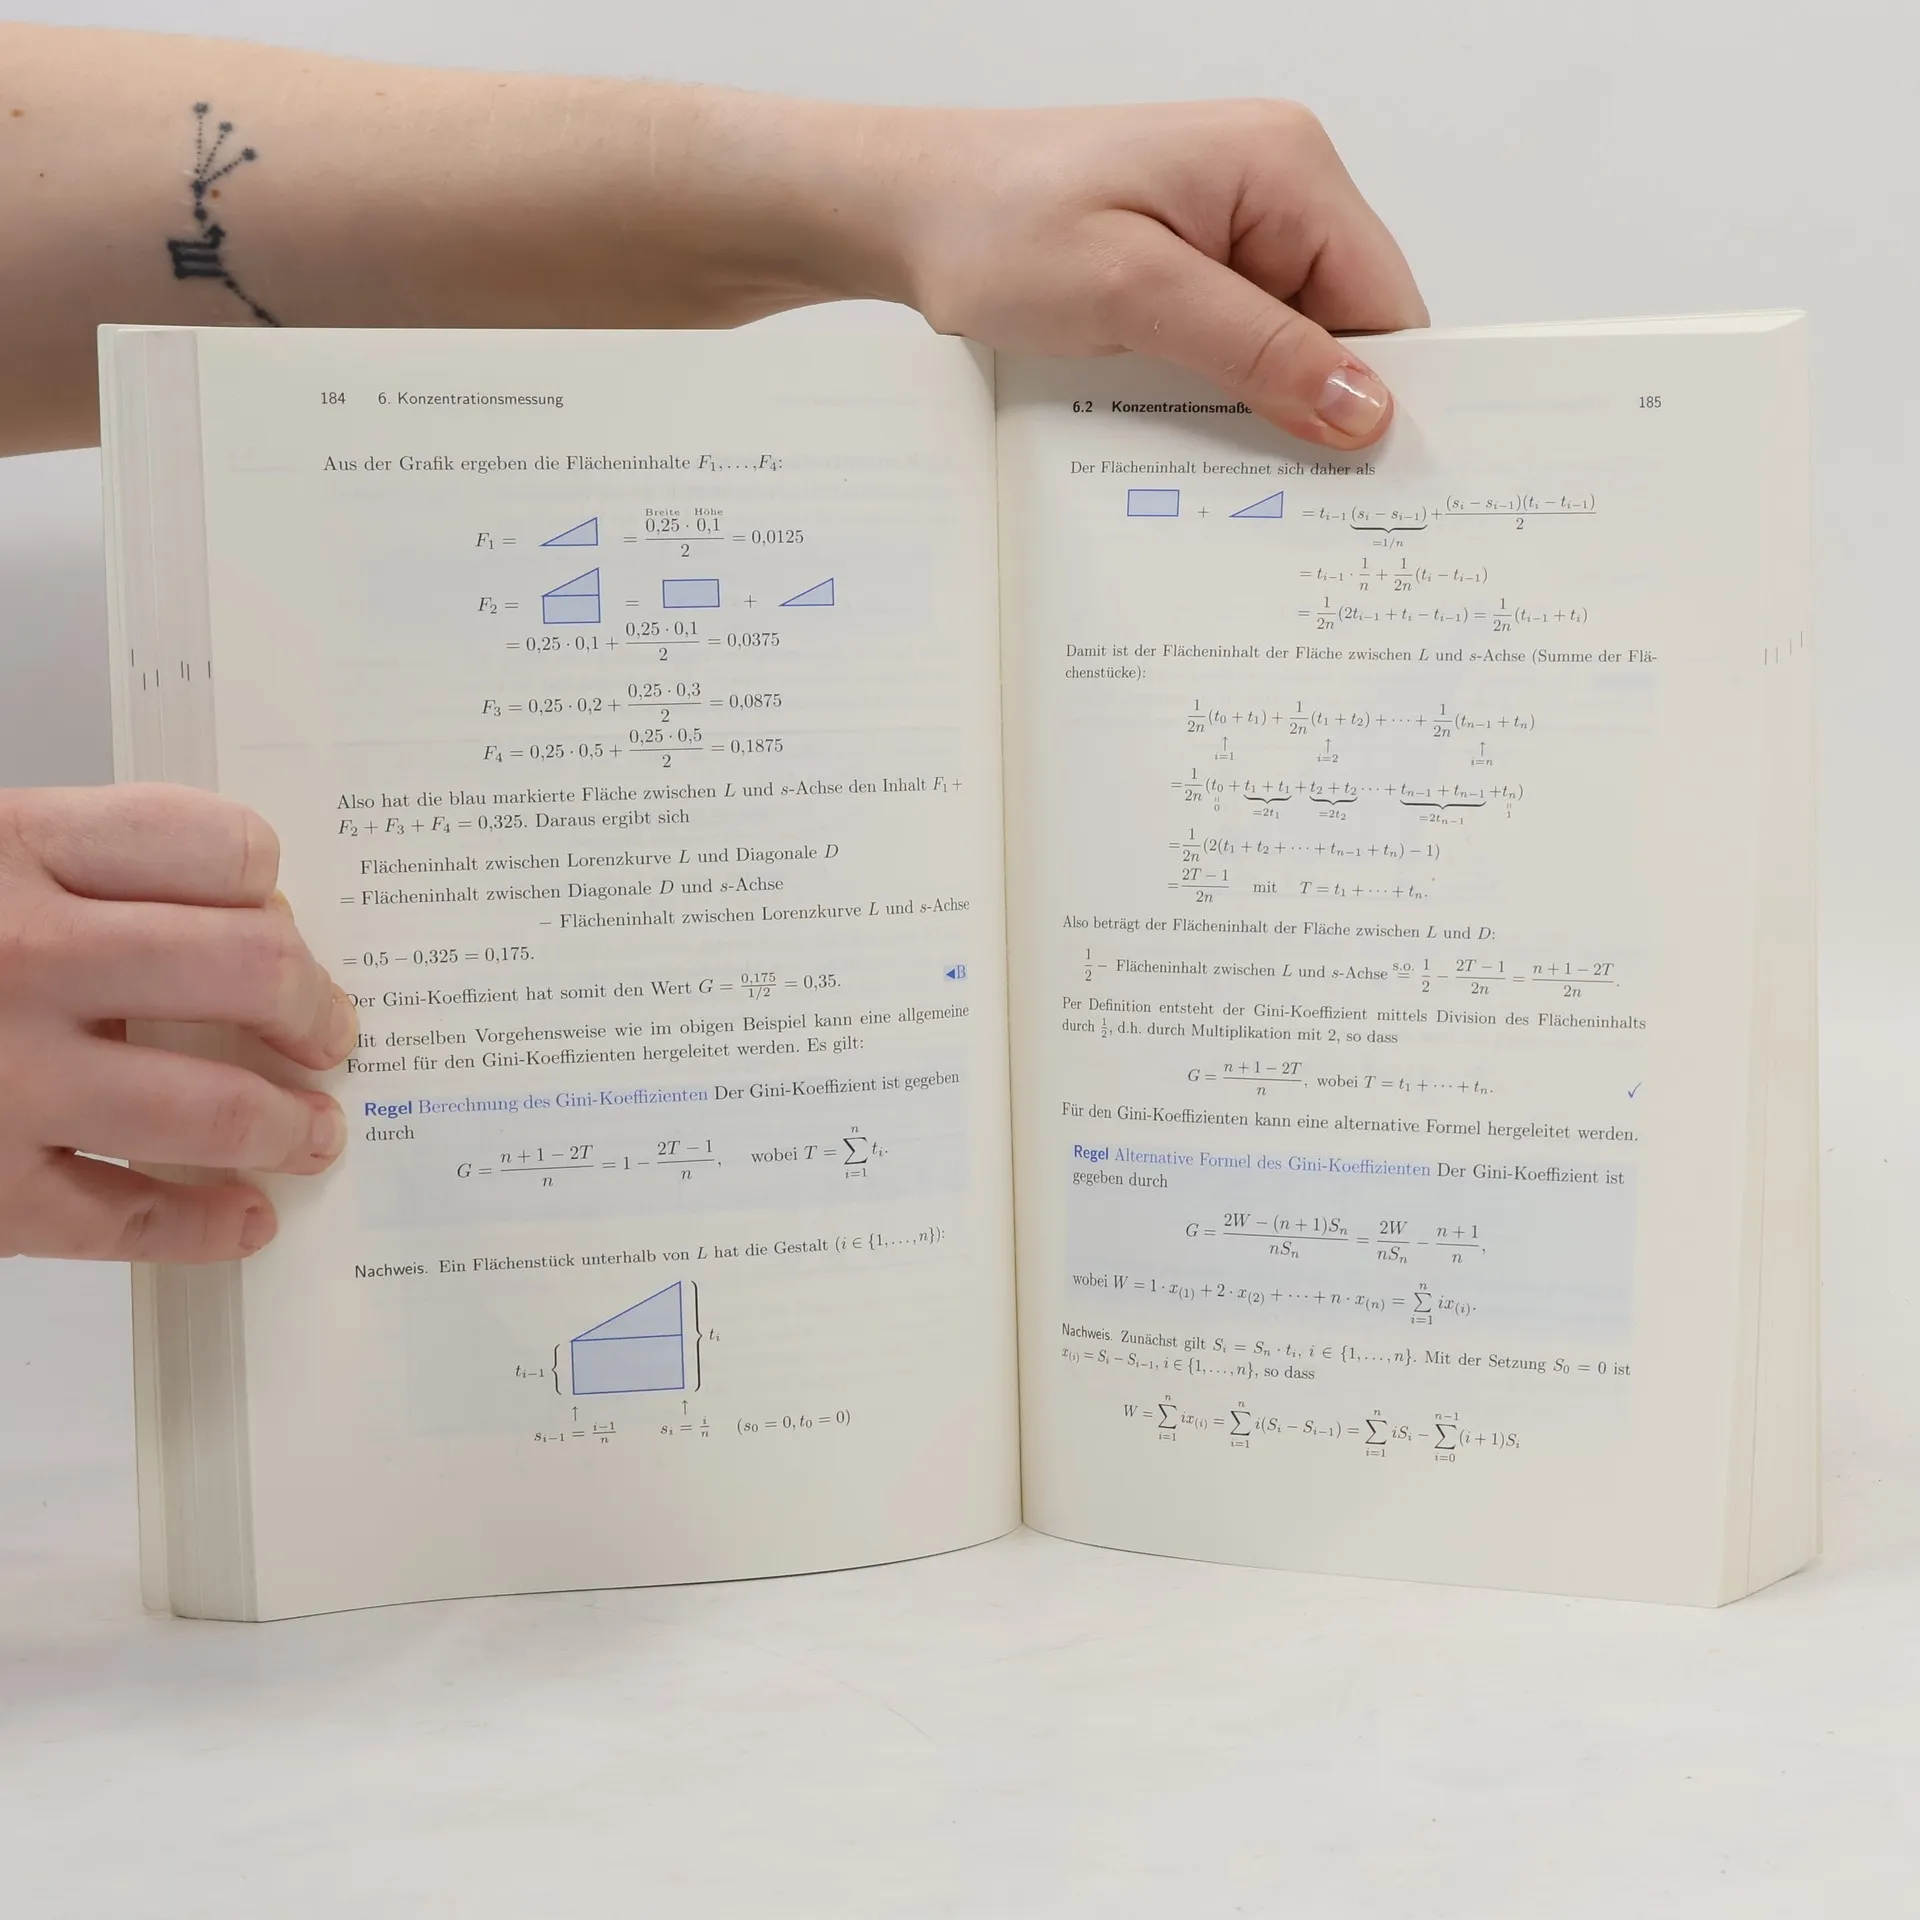 184 6. Konzentrationsmessung
Aus der Grafik ergeben die Flächeninhalte F₁, . . . ,F₄:
F₁ = = (Breite 0,25 · Höhe 0,1)/2 = 0,0125
F₂ = = +
= 0,25 · 0,1 + (0,25 · 0,1)/2 = 0,0375
F₃ = 0,25 · 0,2 + (0,25 · 0,3)/2 = 0,0875
F₄ = 0,25 · 0,5 + (0,25 · 0,5)/2 = 0,1875
Also hat die blau markierte Fläche zwischen L und s-Achse den Inhalt F₁ +
F₂ + F₃ + F₄ = 0,325. Daraus ergibt sich
Flächeninhalt zwischen Lorenzkurve L und Diagonale D
= Flächeninhalt zwischen Diagonale D und s-Achse
− Flächeninhalt zwischen Lorenzkurve L und s-Achse
= 0,5 − 0,325 = 0,175.
Der Gini-Koeffizient hat somit den Wert G = 0,175/(1/2) = 0,35. ◄B
derselben Vorgehensweise wie im obigen Beispiel kann eine allgemeine
Formel für den Gini-Koeffizienten hergeleitet werden. Es gilt:
Regel Berechnung des Gini-Koeffizienten Der Gini-Koeffizient ist gegeben
durch
G = (n + 1 − 2T)/n = 1 − (2T − 1)/n, wobei T = ∑_{i=1}^{n} tᵢ.
Nachweis. Ein Flächenstück unterhalb von L hat die Gestalt (i ∈ {1, . . . , n}):
tᵢ
tᵢ₋₁
↑ ↑
sᵢ₋₁ = (i−1)/n sᵢ = i/n (s₀ = 0, t₀ = 0)
6.2 Konzentrationsmaße 185
Der Flächeninhalt berechnet sich daher als
+ = tᵢ₋₁ (sᵢ − sᵢ₋₁) + (sᵢ − sᵢ₋₁)(tᵢ − tᵢ₋₁)/2
=1/n
= tᵢ₋₁ · 1/n + 1/2n (tᵢ − tᵢ₋₁)
= 1/2n (2tᵢ₋₁ + tᵢ − tᵢ₋₁) = 1/2n (tᵢ₋₁ + tᵢ)
Damit ist der Flächeninhalt der Fläche zwischen L und s-Achse (Summe der Flä-
chenstücke):
1/2n (t₀ + t₁) + 1/2n (t₁ + t₂) + · · · + 1/2n (tₙ₋₁ + tₙ)
↑ ↑ ↑
i=1 i=2 i=n
= 1/2n (t₀ + t₁ + t₁ + t₂ + t₂ · · · + tₙ₋₁ + tₙ₋₁ + tₙ)
=0 =2t₁ =2t₂ =2tₙ₋₁ =1
= 1/2n (2(t₁ + t₂ + · · · + tₙ₋₁ + tₙ) − 1)
= (2T − 1)/2n mit T = t₁ + · · · + tₙ.
Also beträgt der Flächeninhalt der Fläche zwischen L und D:
1/2 − Flächeninhalt zwischen L und s-Achse s.o.= 1/2 − (2T − 1)/2n = (n + 1 − 2T)/2n.
Per Definition entsteht der Gini-Koeffizient mittels Division des Flächeninhalts
durch 1/2, d.h. durch Multiplikation mit 2, so dass
G = (n + 1 − 2T)/n, wobei T = t₁ + · · · + tₙ. ✓
Für den Gini-Koeffizienten kann eine alternative Formel hergeleitet werden.
Regel Alternative Formel des Gini-Koeffizienten Der Gini-Koeffizient ist
gegeben durch
G = (2W − (n + 1)Sₙ)/nSₙ = 2W/nSₙ − (n + 1)/n,
wobei W = 1 · x₍₁₎ + 2 · x₍₂₎ + · · · + n · x₍ₙ₎ = ∑_{i=1}^{n} ix₍ᵢ₎.
Nachweis. Zunächst gilt Sᵢ = Sₙ · tᵢ, i ∈ {1, . . . , n}. Mit der Setzung S₀ = 0 ist
x₍ᵢ₎ = Sᵢ − Sᵢ₋₁, i ∈ {1, . . . , n}, so dass
W = ∑_{i=1}^{n} ix₍ᵢ₎ = ∑_{i=1}^{n} i(Sᵢ − Sᵢ₋₁) = ∑_{i=1}^{n} iSᵢ − ∑_{i=0}^{n−1} (i + 1)Sᵢ